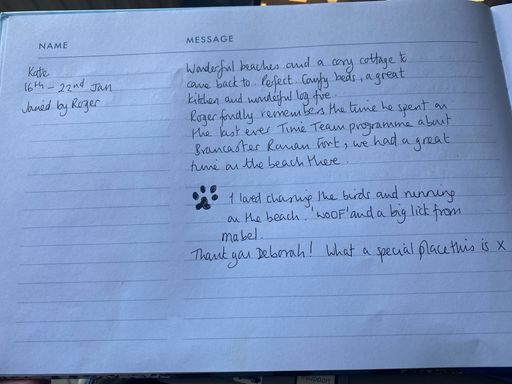 NAME
MESSAGE
Kate
16th - 22nd Jan
Joined by Roger
Wonderful beaches and a cosy cottage to
come back to. Perfect. Comfy beds, a great
kitchen and wonderful log fire.
Roger fondly remembers the time he spent on
the last ever Time Team programme about
Brancaster Roman Fort, we had a great
time on the beach there.
I loved chasing the birds and running
on the beach. 'WOOF' and a big lick from
mabel.
Thank you Deborah! What a special place this is x